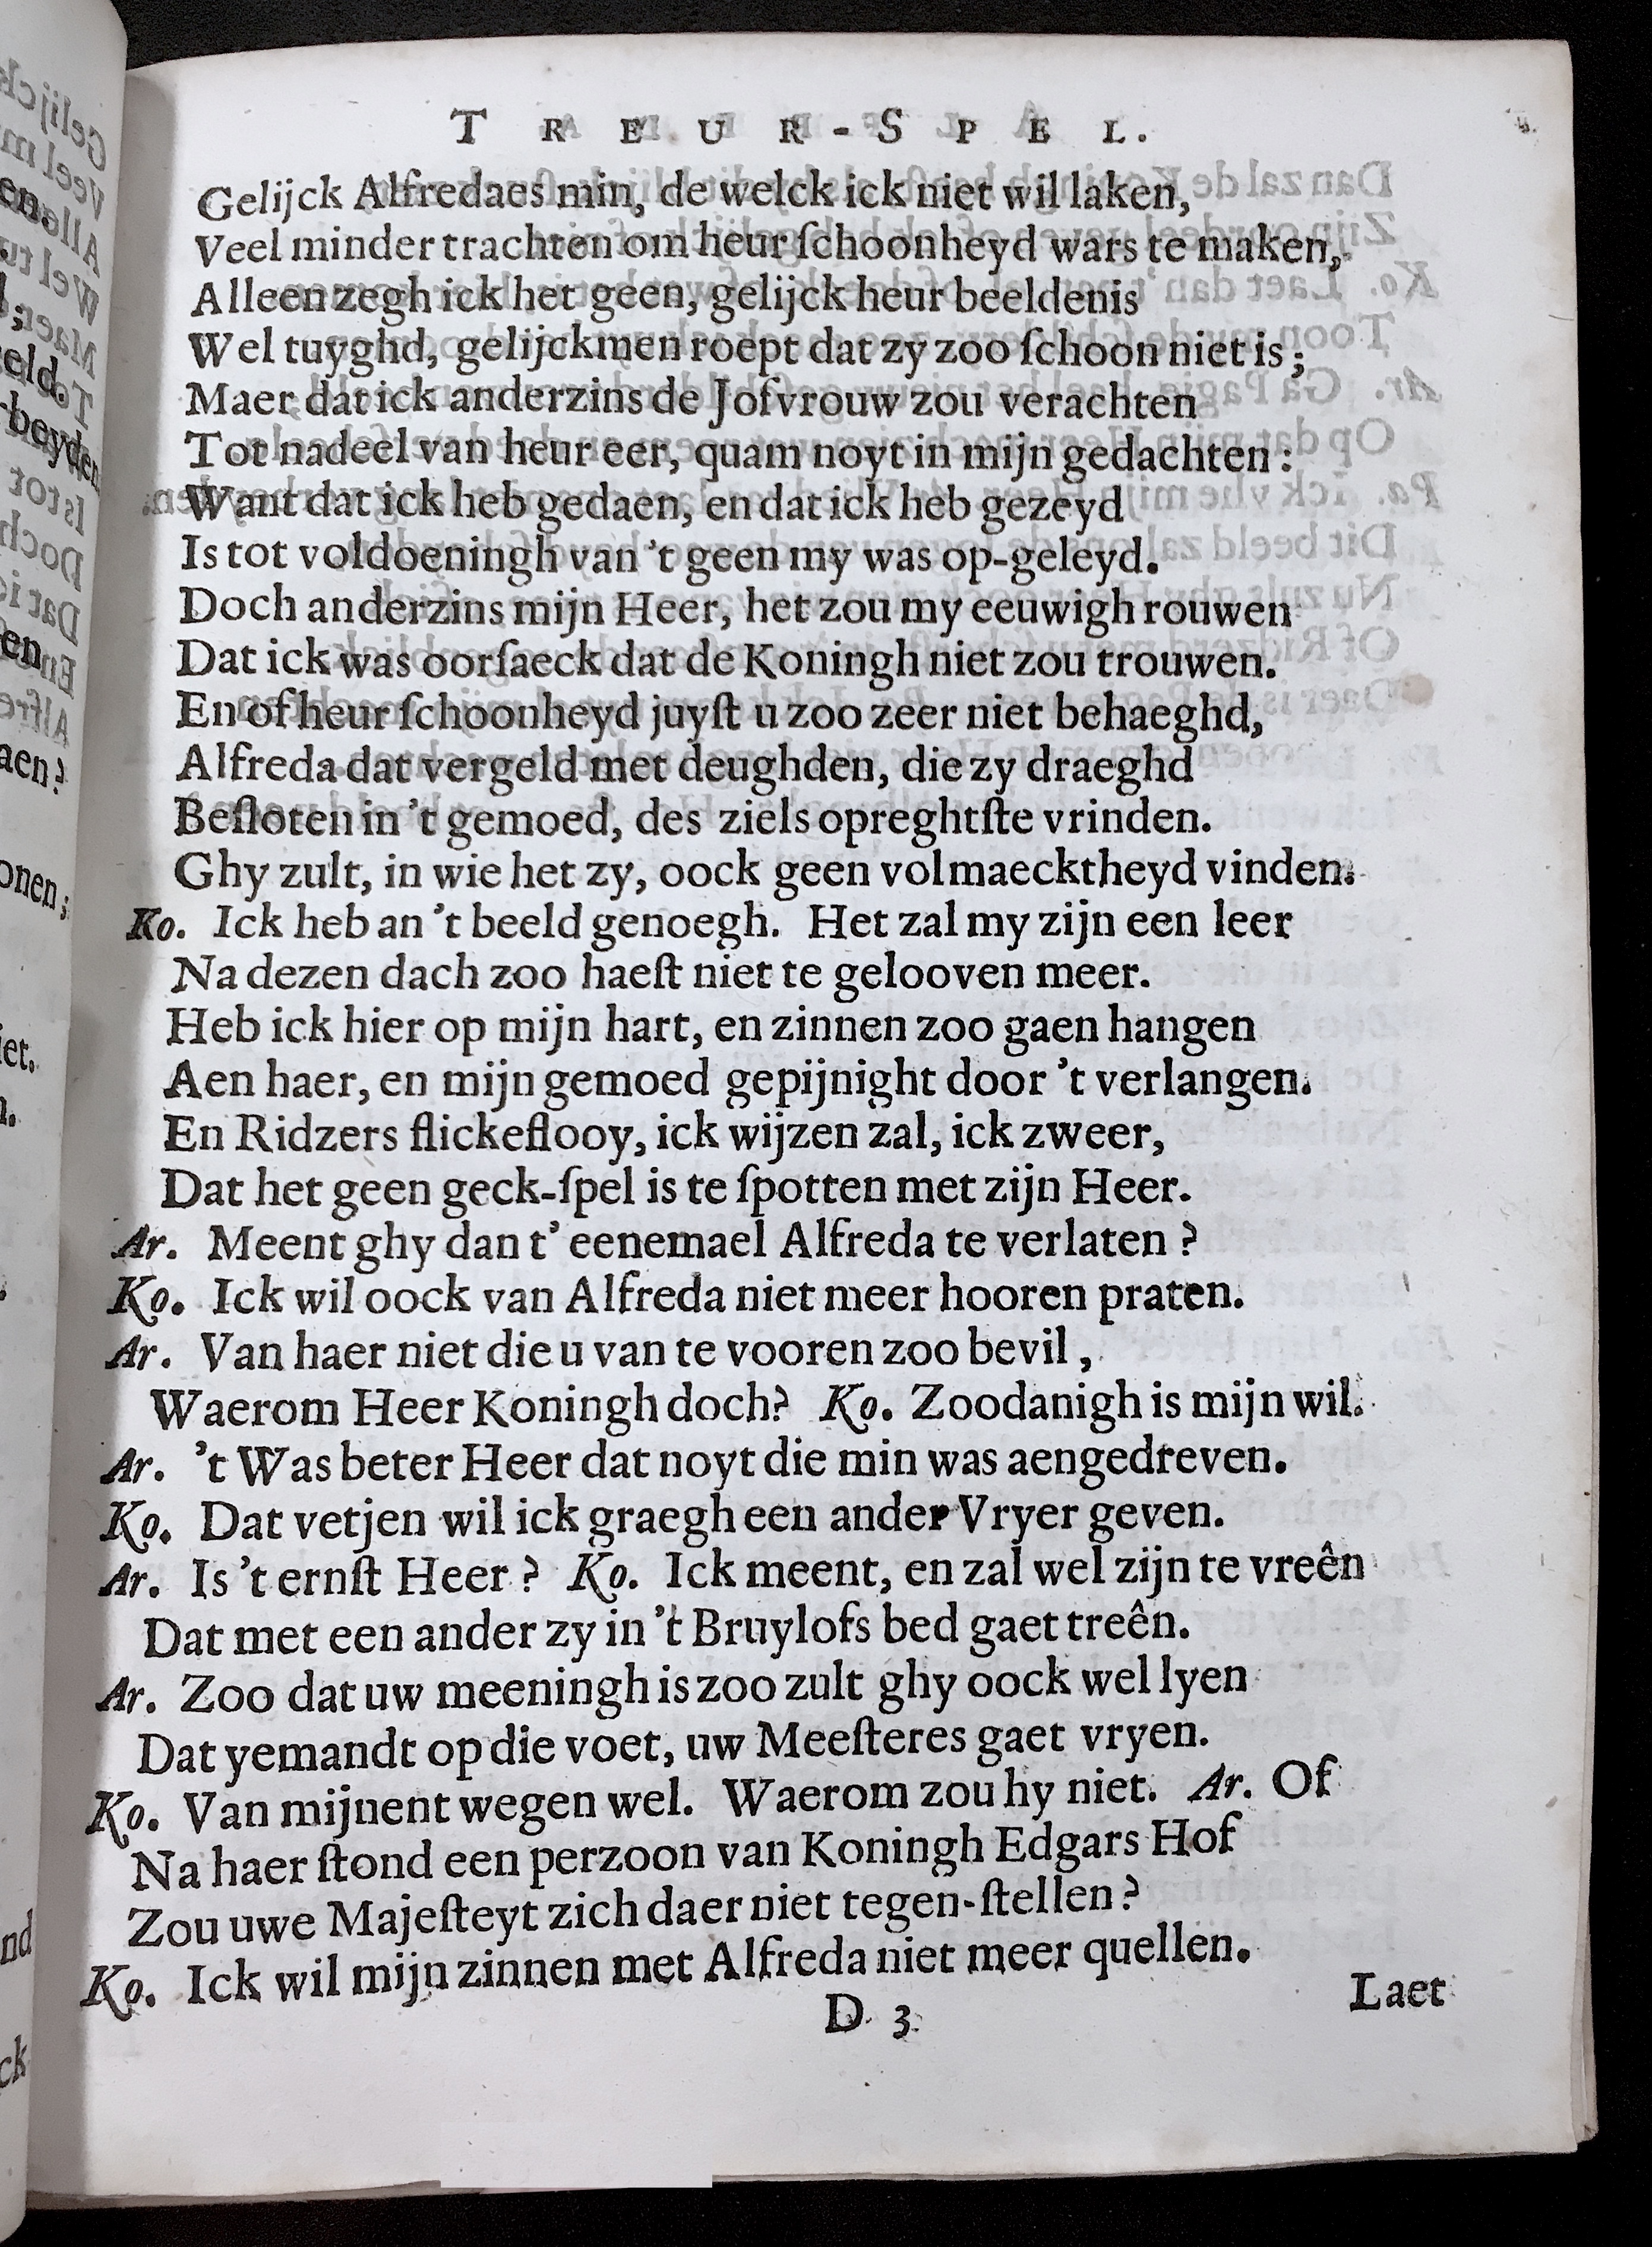 TREUR-SPEL.
Gelijck Alfredaes min, de welck ick niet wil laken,
Veel minder trachten om heur ſchoonheyd wars te maken,
Alleen zegh ick het geen, gelijck heur beeldenis
Wel tuyghd, gelijckmen roept dat zy zoo ſchoon niet is;
Maer dat ick anderzins de Jofvrouw zou verachten
Tot nadeel van heur eer, quam noyt in mijn gedachten:
Want dat ick heb gedaen, en dat ick heb gezeyd
Is tot voldoeningh van 't geen my was op-geleyd.
Doch anderzins mijn Heer, het zou my eeuwigh rouwen
Dat ick was oorſaeck dat de Koningh niet zou trouwen.
En of heur ſchoonheyd juyſt u zoo zeer niet behaeghd,
Alfreda dat vergeld met deughden, die zy draeghd
Beſloten in 't gemoed, des ziels opreghtſte vrinden.
Ghy zult, in wie het zy, oock geen volmaecktheyd vinden.
Ko. Ick heb an 't beeld genoegh. Het zal my zijn een leer
Na dezen dach zoo haeſt niet te gelooven meer.
Heb ick hier op mijn hart, en zinnen zoo gaen hangen
Aen haer, en mijn gemoed gepijnight door 't verlangen.
En Ridzers ſlickeſlooy, ick wijzen zal, ick zweer,
Dat het geen geck-ſpel is te ſpotten met zijn Heer.
Ar. Meent ghy dan t' eenemael Alfreda te verlaten?
Ko. Ick wil oock van Alfreda niet meer hooren praten.
Ar. Van haer niet die u van te vooren zoo bevil,
Waerom Heer Koningh doch? Ko. Zoodanigh is mijn wil.
Ar. 't Was beter Heer dat noyt die min was aengedreven.
Ko. Dat vetjen wil ick graegh een ander Vryer geven.
Ar. Is 't ernſt Heer? Ko. Ick meent, en zal wel zijn te vreên
Dat met een ander zy in 't Bruylofs bed gaet treên.
Ar. Zoo dat uw meeningh is zoo zult ghy oock wel lyen
Dat yemandt op die voet, uw Meeſteres gaet vryen.
Ko. Van mijnent wegen wel. Waerom zou hy niet. Ar. Of
Na haer ſtond een perzoon van Koningh Edgars Hof
Zou uwe Majeſteyt zich daer niet tegen-ſtellen?
Ko. Ick wil mijn zinnen met Alfreda niet meer quellen.
D 3
Laet